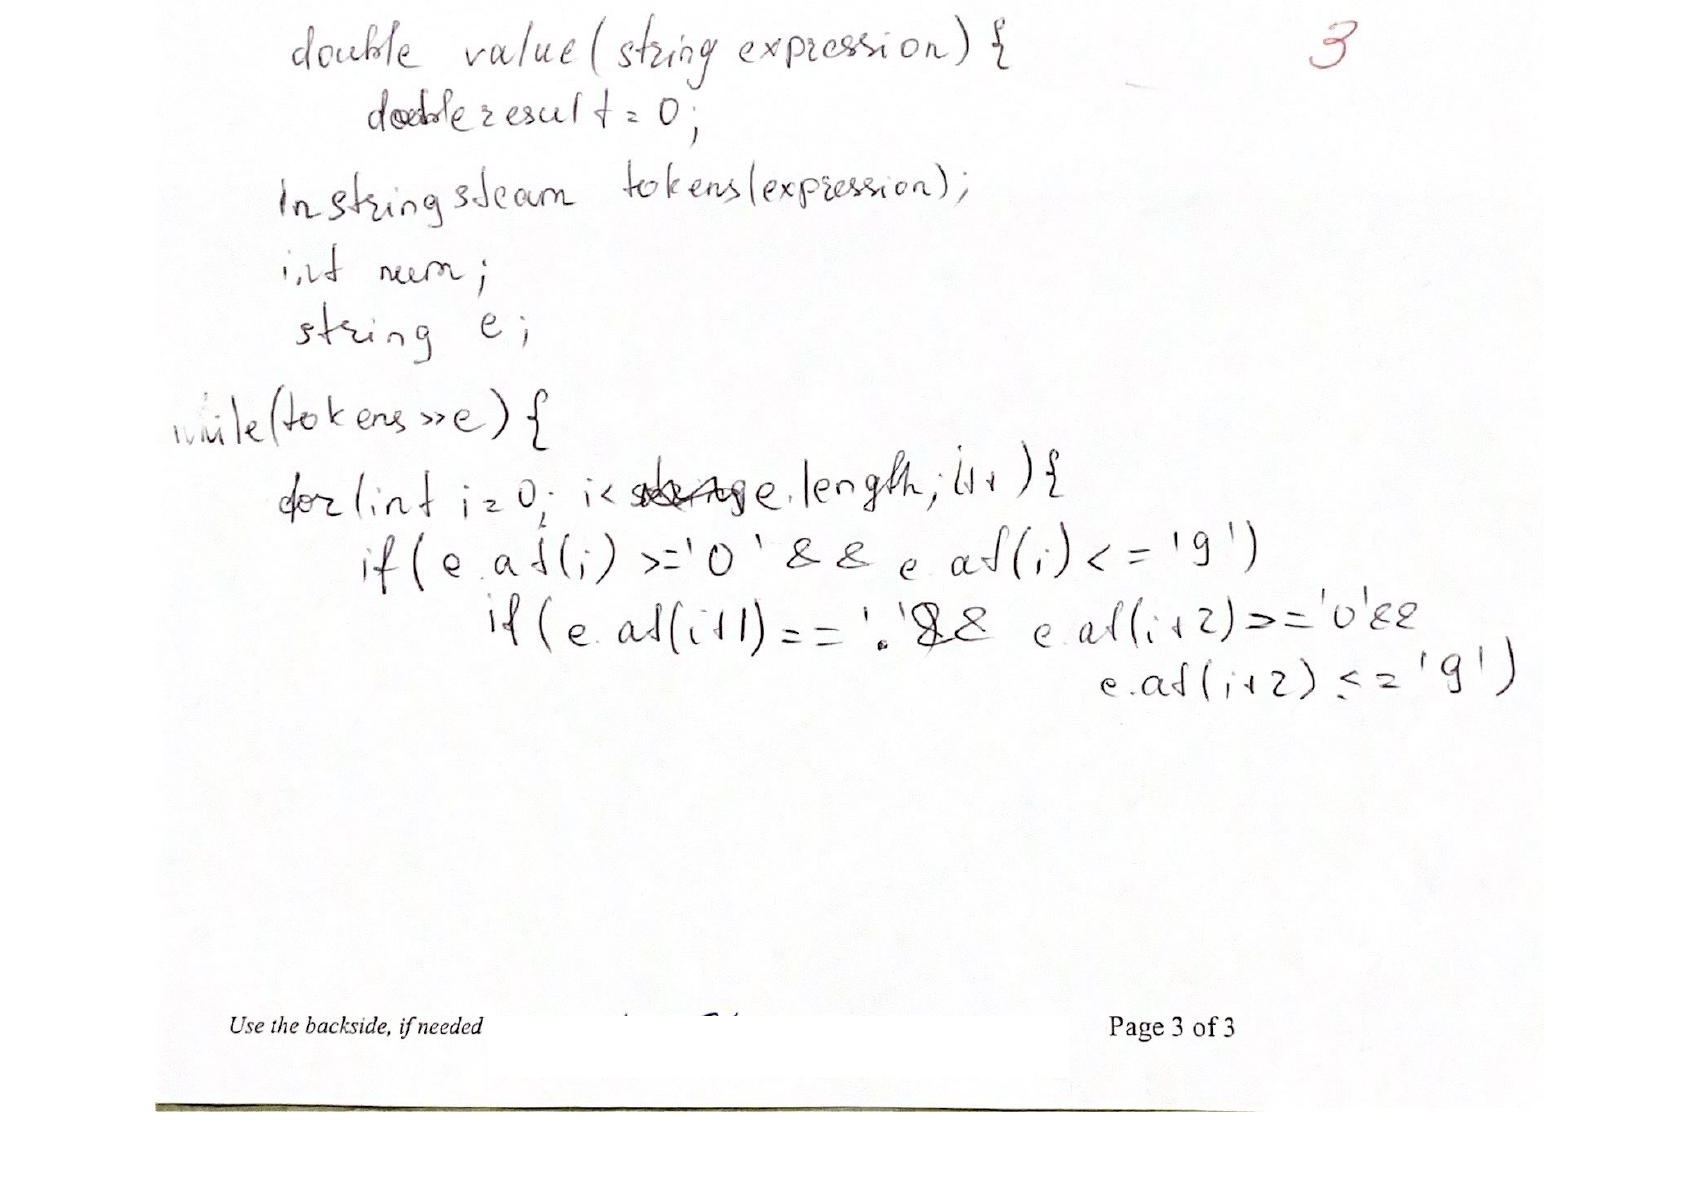 double value(string expression) { 3
double result = 0;
Instringsteam tokens(expression);
int num;
string e;
while(tokens >> e) {
for(int i=0; i< e.length; i++) {
if(e.at(i) >= '0' && e.at(i) <= '9')
if(e.at(i+1) == '.' && e.at(i+2) >= '0' &&
e.at(i+2) <= '9')
Use the backside, if needed Page 3 of 3